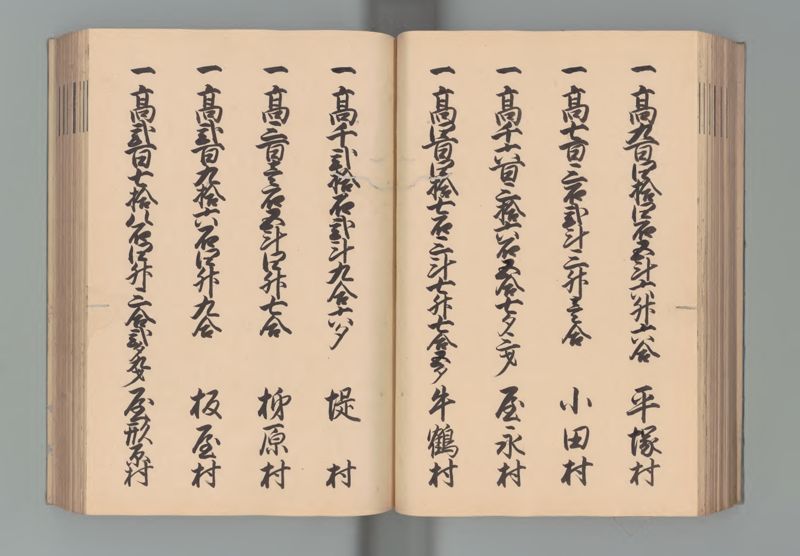 一高九百四拾四石五斗六升六合 平塚村
一高七百三石弐斗三升壱合 小田村
一高千六百三拾六石五合七夕三才 屋永村
一高四百四拾七石三斗七升七合五夕 牛鶴村
一高千弐拾石弐斗九合六夕 堤村
一高三百壱石五斗四升七合 栁原村
一高弐百九拾六石四升九合 板屋村
一高弐百七拾八石四升三合弐夕九才 屋形原村